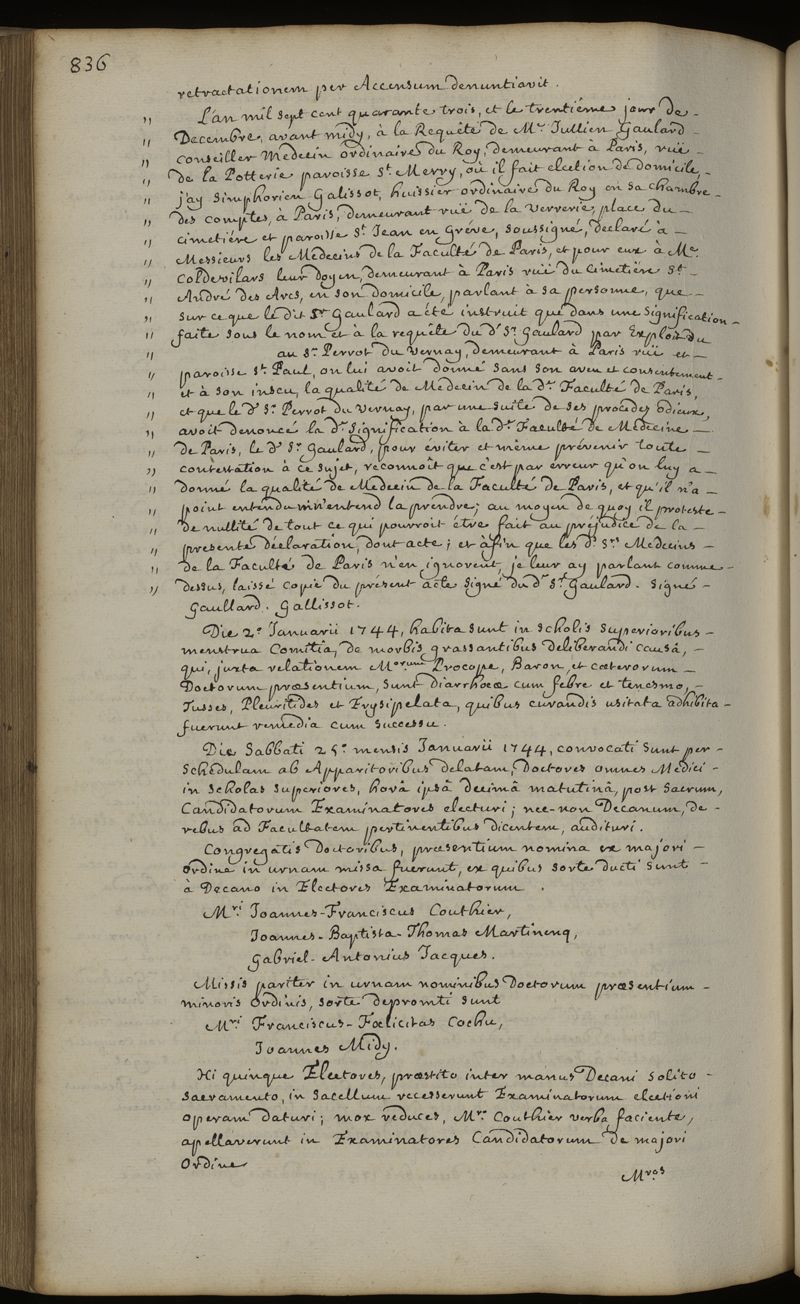 836
retractationem per Accensum denuntiavit.
" L'an mil sept cent quarante trois, et le trentiéme jour de -
" Decembre, avant midy, à la Requête de Mr. Jullien Gaulard -
" Conseiller Medecin ordinaire du Roy, demeurant à Paris, ruë -
" de la Potterie paroisse St. Merry, où il fait election de domicile, -
" j'ay Simphorien Galissot, huissier ordinaire du Roy en sa chambre -
" des comptes, à Paris, demeurant ruë de la Verrerie, place du -
" cimetiére et paroisse St. Jean en Gréve, soussigné, declaré à -
" Messieurs les Médecins de la Faculté de Paris, et pour eux à Me.
" Coldevilars leur doyen, demeurant à Paris ruë du Cimetiére St. -
" André des Arcs, en son domicile, parlant à sa personne, que -
" sur ce que le dit Sr Gaulard a été instruit que dans une signification -
" faite sous le nom et à la requête du d. Sr. Gaulard par Exploit du
" au Sr. Perrot du Vernay, demeurant à Paris ruë et -
" paroisse St. Paul, on lui avoit donné sans son aveu et consentement -
" et à son insçu, la qualité de Medecin de la de. Faculté de Paris,
" et que le d. Sr. Perrot du Vernay, par une suite de ses procedez odieux,
" avoit denoncé la de. signification à la de. Faculté de Médecine -
" de Paris, le d. Sr. Gaulard, pour éviter et même prévenir toute -
" contestation à ce sujet, reconnoit que c'est par erreur qu'on luy a -
" donné la qualité de Medecin de la Faculté de Paris, et qu'il n'a -
" point entendu ni n'entend la prendre; au moyen de quoy il proteste -
" de nullité de tout ce qui pourroit être fait au préjudice de la -
" presente déclaration, dont acte; et àfin que les d. Srs. Medecins -
" de la Faculté de Paris n'en ignorent, je leur ay parlant comme -
" dessus, laissé copie du présent acte signé du d. Sr. Gaulard. signé -
Gaullard. Gallissot.
Die 2a. Januarii 1744, habita sunt in Scholis superioribus -
menstrua Comitia, de morbis grassantibus deliberandi causâ, -
qui, juxta relationem Mrorum Procope, Baron, et cæterorum -
Doctorum præsentium, sunt diarrhoeæ cum febre et tenesmo, -
Tusses, Pleuritides et Erysipelata, quibus curandis usitata adhibita -
fuerunt remedia cum successu.
Die Sabbati 25a. mensis Januarii 1744, convocati sunt per -
schedulam ab Apparitoribus delatam, Doctores omnes Medici -
in Scholas superiores, horâ ipsâ decimâ matutinâ, post Sacrum,
Candidatorum Examinatores electuri; nec-non Decanum, de -
rebus ad Facultatem pertinentibus dicentem, audituri.
Congregatis Doctoribus, præsentium nomina ex majori -
ordine in urnam missa fuerunt, ex quibus sorte ducti sunt -
à Decano in Electores Examinatorum.
Mri. Joannes-Franciscus Couthier,
Joannes-Baptista-Thomas Martinenq,
Gabriel-Antonius Jacques.
Missis pariter in urnam nominibus Doctorum præsentium -
minoris Ordinis, sorte depromti sunt
Mri. Franciscus-Foelicitas Cochu,
Joannes Midy.
Hi quinque Electores, præstito inter manus Decani solito -
sacramento, in Sacellum recesserunt Examinatorum electioni
operam daturi; mox reduces, Mro. Couthier verba faciente,
apellaverunt in Examinatores Candidatorum de majori
Ordine
Mros